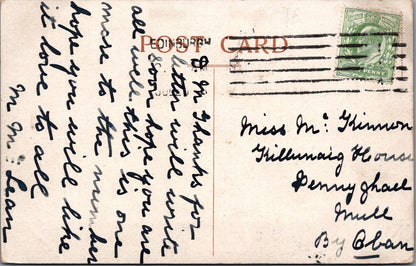 POST CARD
EDINBURGH
D. M Thanks for
letter will write
soon hope you are
all well this is one
more to the number
hope you will like
it love to all
M Mc Lean
Miss Mc Kinnon
Killunaig House
Pennyghael
Mull
By Oban